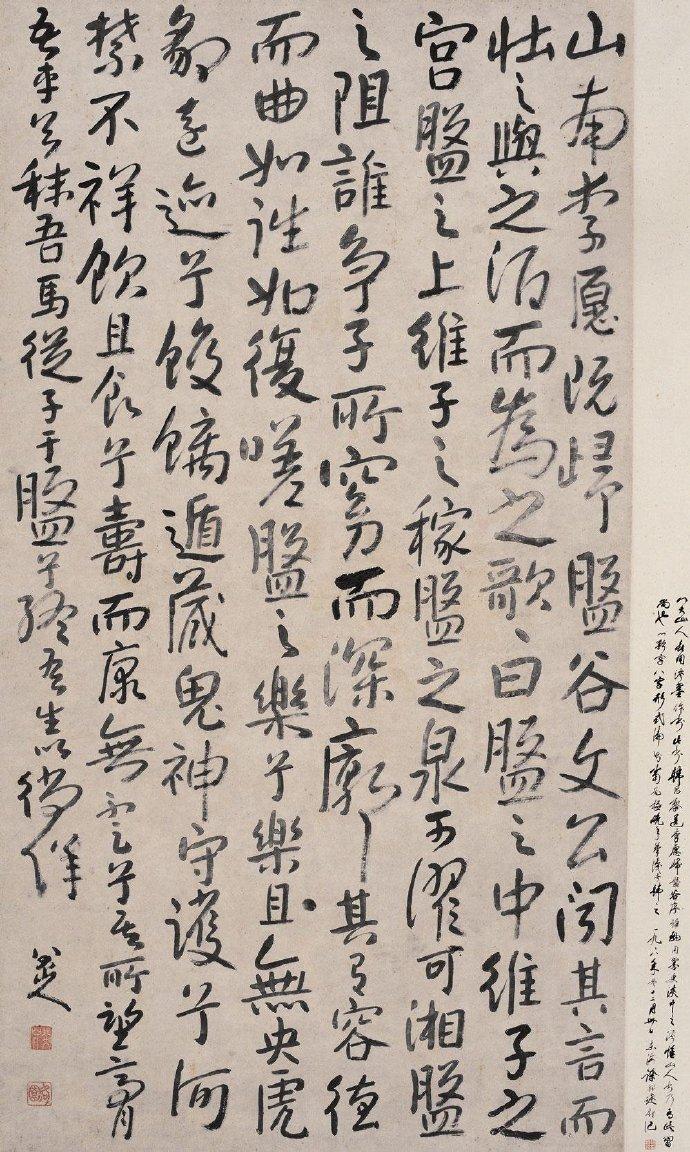 山南李愿既歸盤谷文公聞其言而
壯之與之酒而為之歌曰盤之中維子之
宮盤之上維子之稼盤之泉可濯可湘盤
之阻誰爭子所窈而深廓其有容繚
而曲如往如復嗟盤之樂兮樂且無央虎
豹遠迹兮蛟螭遁藏鬼神守護兮呵
禁不祥飲且食兮壽而康無不足兮奚所望膏
吾車兮秣吾馬從子于盤兮終吾生以徜徉
八大山人